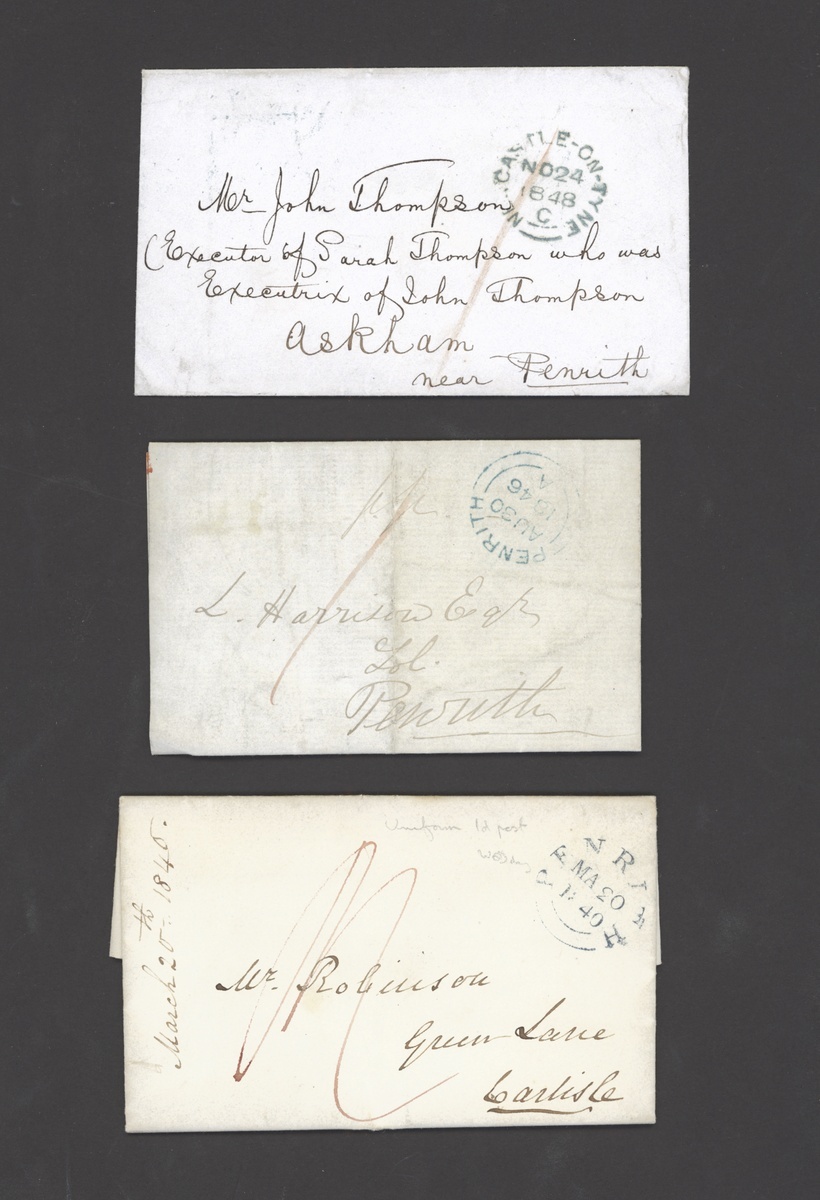 NEWCASTLE-ON-TYNE
NO 24
1848
C
Mr John Thompson
(Executor of Sarah Thompson who was
Executrix of John Thompson
Askham
near Penrith
PENRITH
AU 30
1846
A
L. Harrison Esqr
Penrith
Uniform 1d post
PENRITH
MA 20
1840
March 20th 1840.
Mr. Robinson
Green Lane
Carlisle